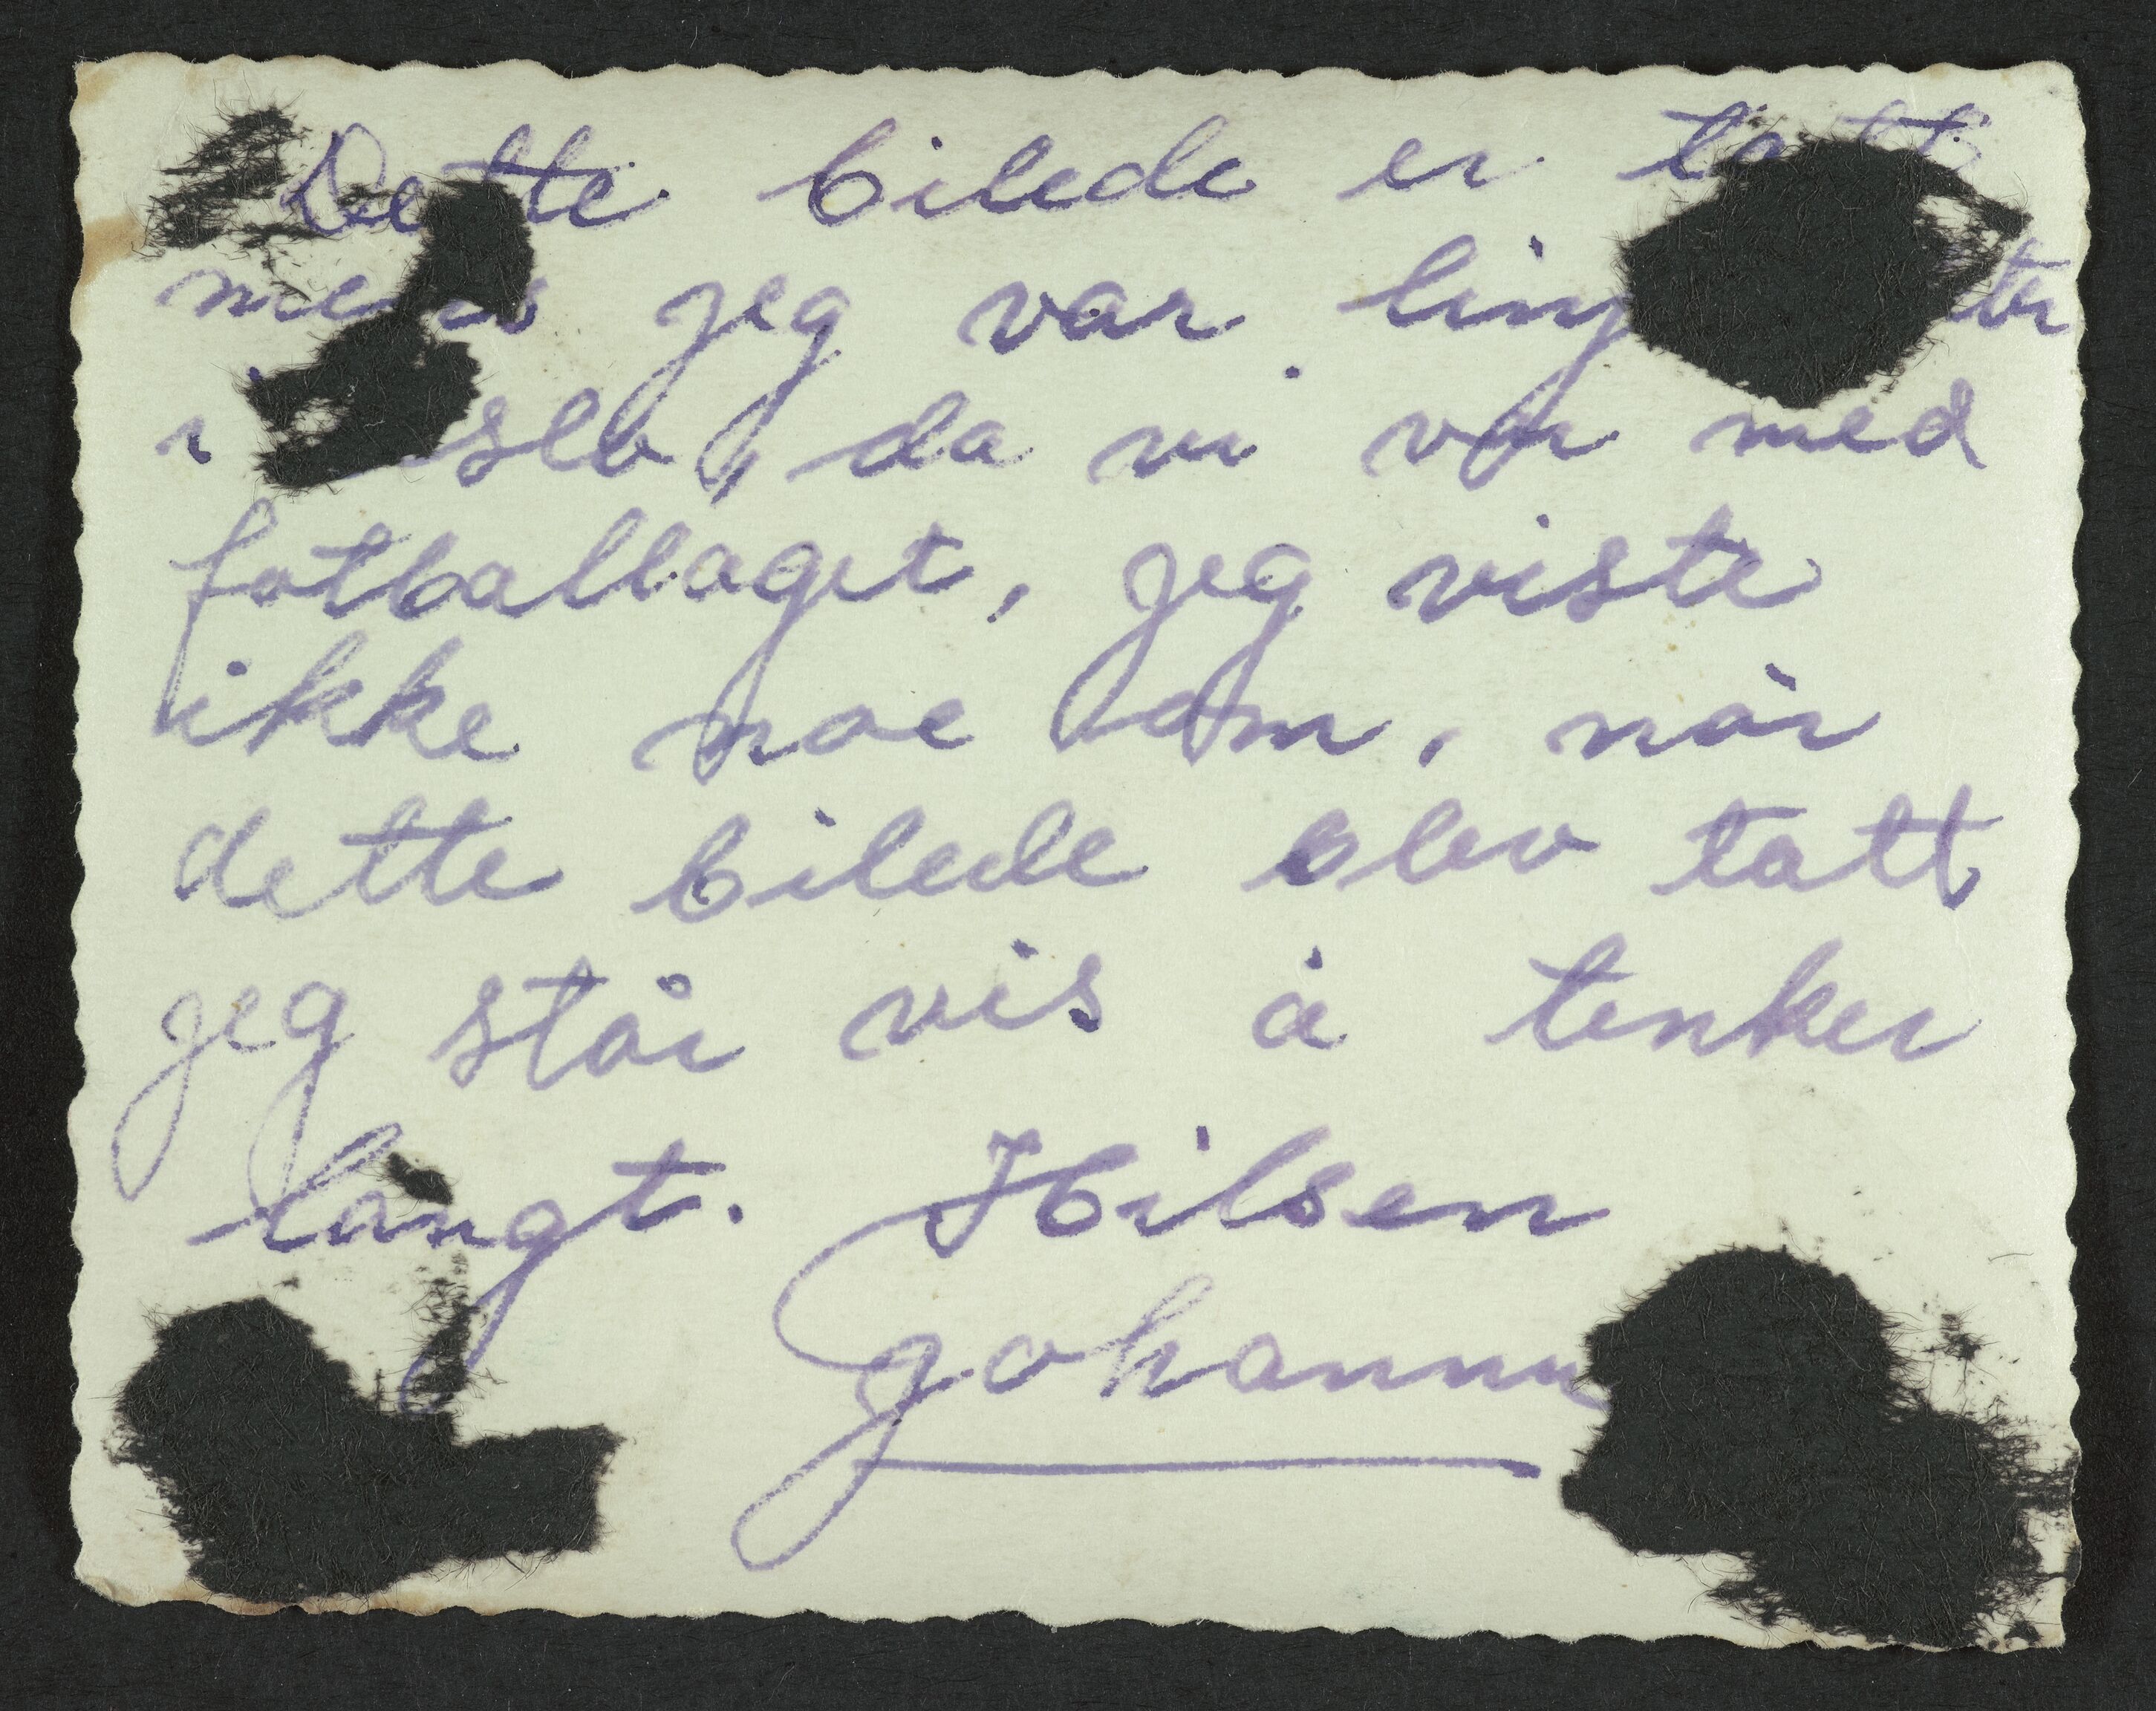 Dette bilede er tatt
mens jeg var
i Oslo, da vi var med
fotballaget, jeg viste
ikke noe om, når
dette bilede blev tatt
jeg står vis å tenker
langt. Hilsen
Johannes